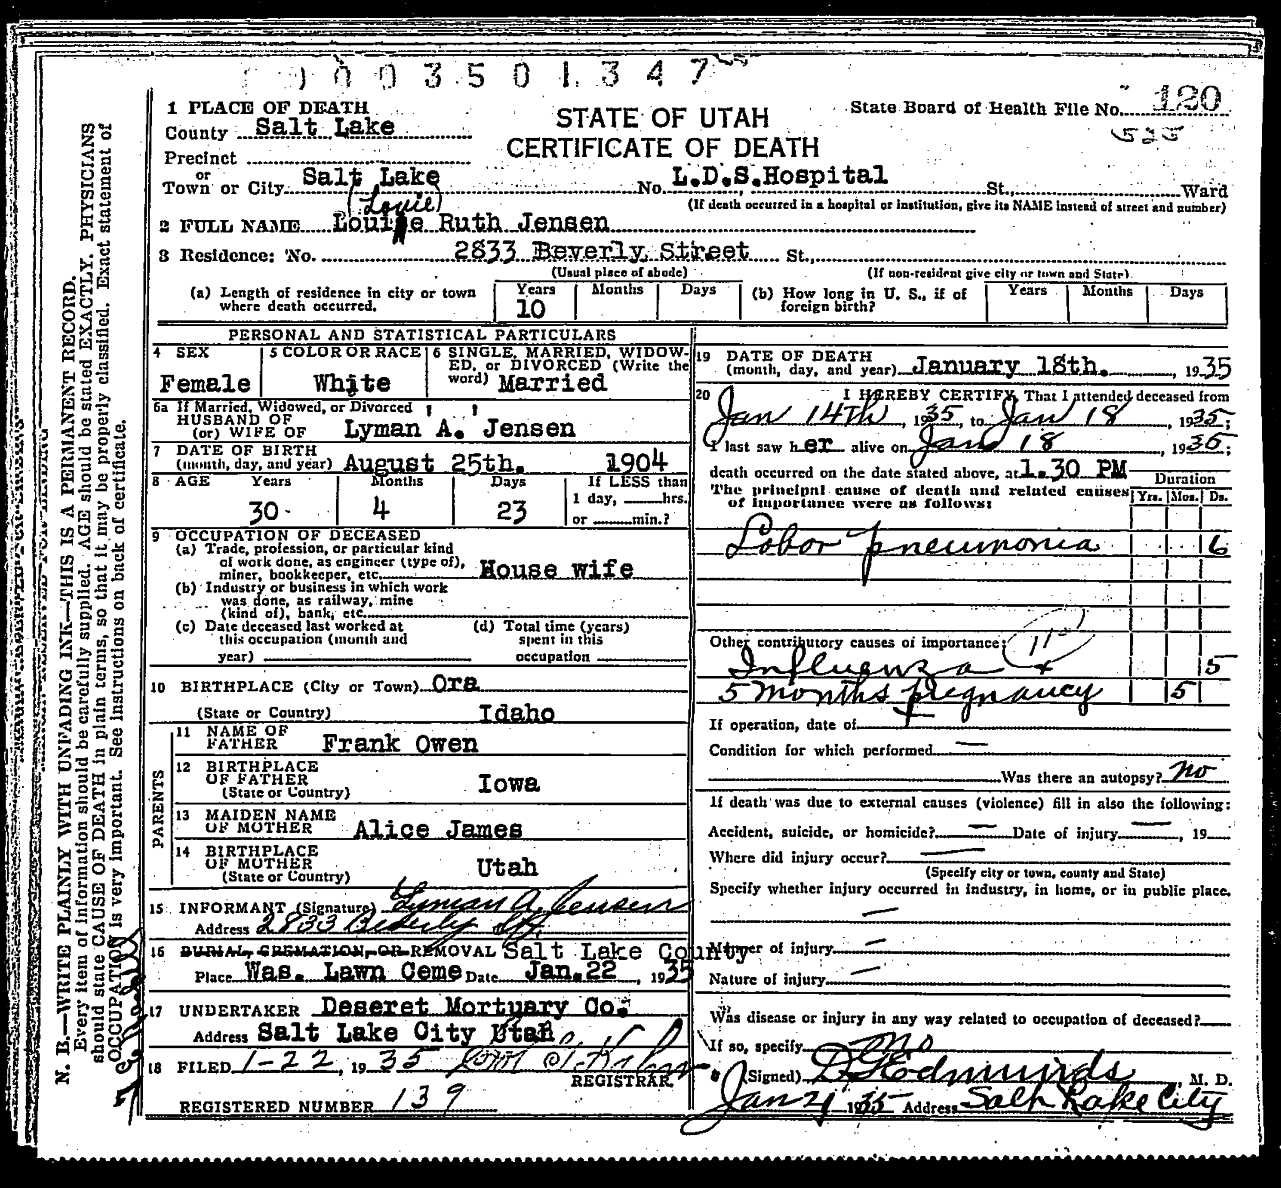 003501347
1 PLACE OF DEATH
County Salt Lake
STATE OF UTAH
CERTIFICATE OF DEATH
State Board of Health File No. 120
525
Precinct
or
Town or City Salt Lake No. L.D.S.Hospital St., Ward
(If death occurred in a hospital or institution, give its NAME instead of street and number)
(Louie)
2 FULL NAME Louise Ruth Jensen
3 Residence: No. 2833 Beverly Street St.,
(Usual place of abode) (If non-resident give city or town and State)
(a) Length of residence in city or town where death occurred. Years 10 Months Days
(b) How long in U. S., if of foreign birth? Years Months Days
PERSONAL AND STATISTICAL PARTICULARS
4 SEX Female
5 COLOR OR RACE White
6 SINGLE, MARRIED, WIDOWED, or DIVORCED (Write the word) Married
6a If Married, Widowed, or Divorced
HUSBAND OF
(or) WIFE OF Lyman A. Jensen
7 DATE OF BIRTH
(month, day, and year) August 25th. 1904
8 AGE Years 30 Months 4 Days 23
If LESS than
1 day, hrs.
or min.?
9 OCCUPATION OF DECEASED
(a) Trade, profession, or particular kind
of work done, as engineer (type of),
miner, bookkeeper, etc. House wife
(b) Industry or business in which work
was done, as railway, mine
(kind of), bank, etc.
(c) Date deceased last worked at
this occupation (month and
year)
(d) Total time (years)
spent in this
occupation
10 BIRTHPLACE (City or Town) Ora
(State or Country) Idaho
PARENTS
11 NAME OF
FATHER Frank Owen
12 BIRTHPLACE
OF FATHER
(State or Country) Iowa
13 MAIDEN NAME
OF MOTHER Alice James
14 BIRTHPLACE
OF MOTHER
(State or Country) Utah
15 INFORMANT (Signature) Lyman A. Jensen
Address 2833 Beverly St.
16 BURIAL, CREMATION, OR REMOVAL Salt Lake County
Place Was. Lawn Ceme Date Jan.22, 1935
17 UNDERTAKER Deseret Mortuary Co.
Address Salt Lake City Utah
18 FILED 1-22, 1935
REGISTRAR.
REGISTERED NUMBER 139
19 DATE OF DEATH
(month, day, and year) January 18th., 1935
20 I HEREBY CERTIFY, That I attended deceased from
Jan 14th, 1935, to Jan 18, 1935;
I last saw her alive on Jan 18, 1935;
death occurred on the date stated above, at 1.30 PM
The principal cause of death and related causes
of importance were as follows:
Duration
Yrs. Mos. Ds.
Lobar pneumonia 6
Other contributory causes of importance:
Influenza 5
5 months pregnancy 5
If operation, date of
Condition for which performed
Was there an autopsy? no
If death was due to external causes (violence) fill in also the following:
Accident, suicide, or homicide? Date of injury, 19
Where did injury occur?
(Specify city or town, county and State)
Specify whether injury occurred in industry, in home, or in public place.
Manner of injury
Nature of injury
Was disease or injury in any way related to occupation of deceased?
If so, specify no
(Signed) D G Edmunds, M. D.
Jan 21 1935 Address Salt Lake City
N. B.—WRITE PLAINLY WITH UNFADING INK—THIS IS A PERMANENT RECORD.
Every item of information should be carefully supplied. AGE should be stated EXACTLY. PHYSICIANS
should state CAUSE OF DEATH in plain terms, so that it may be properly classified. Exact statement of
OCCUPATION is very important. See instructions on back of certificate.